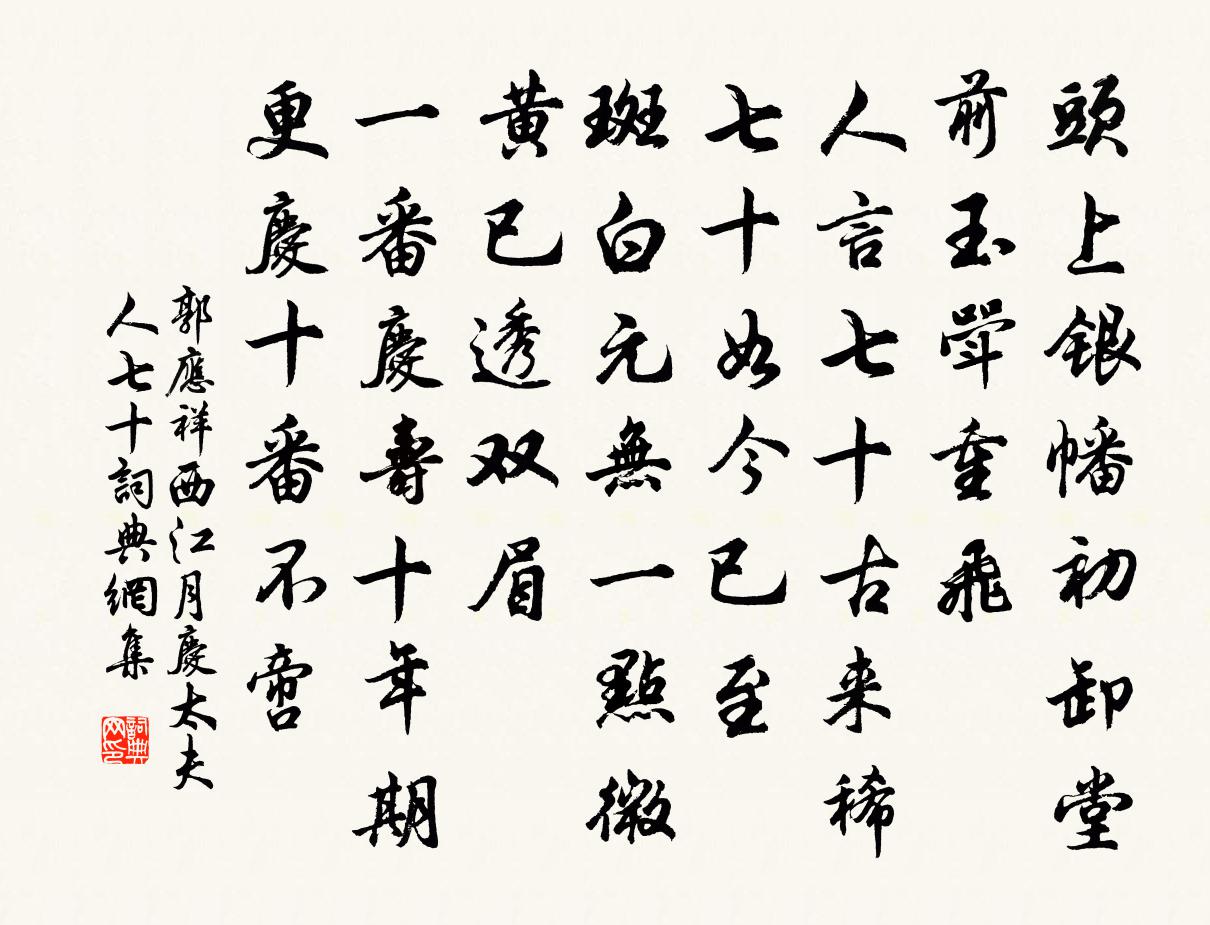 頭上銀幡初卸堂
前玉斝重飛
人言七十古来稀
七十如今已至
斑白元無一點微
黄已透双眉
一番慶壽十年期
更慶十番不啻
郭應祥西江月慶太夫
人七十詞典網集
詞典
网印